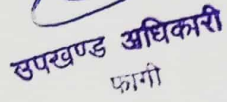 उपखण्ड अधिकारी
फागी